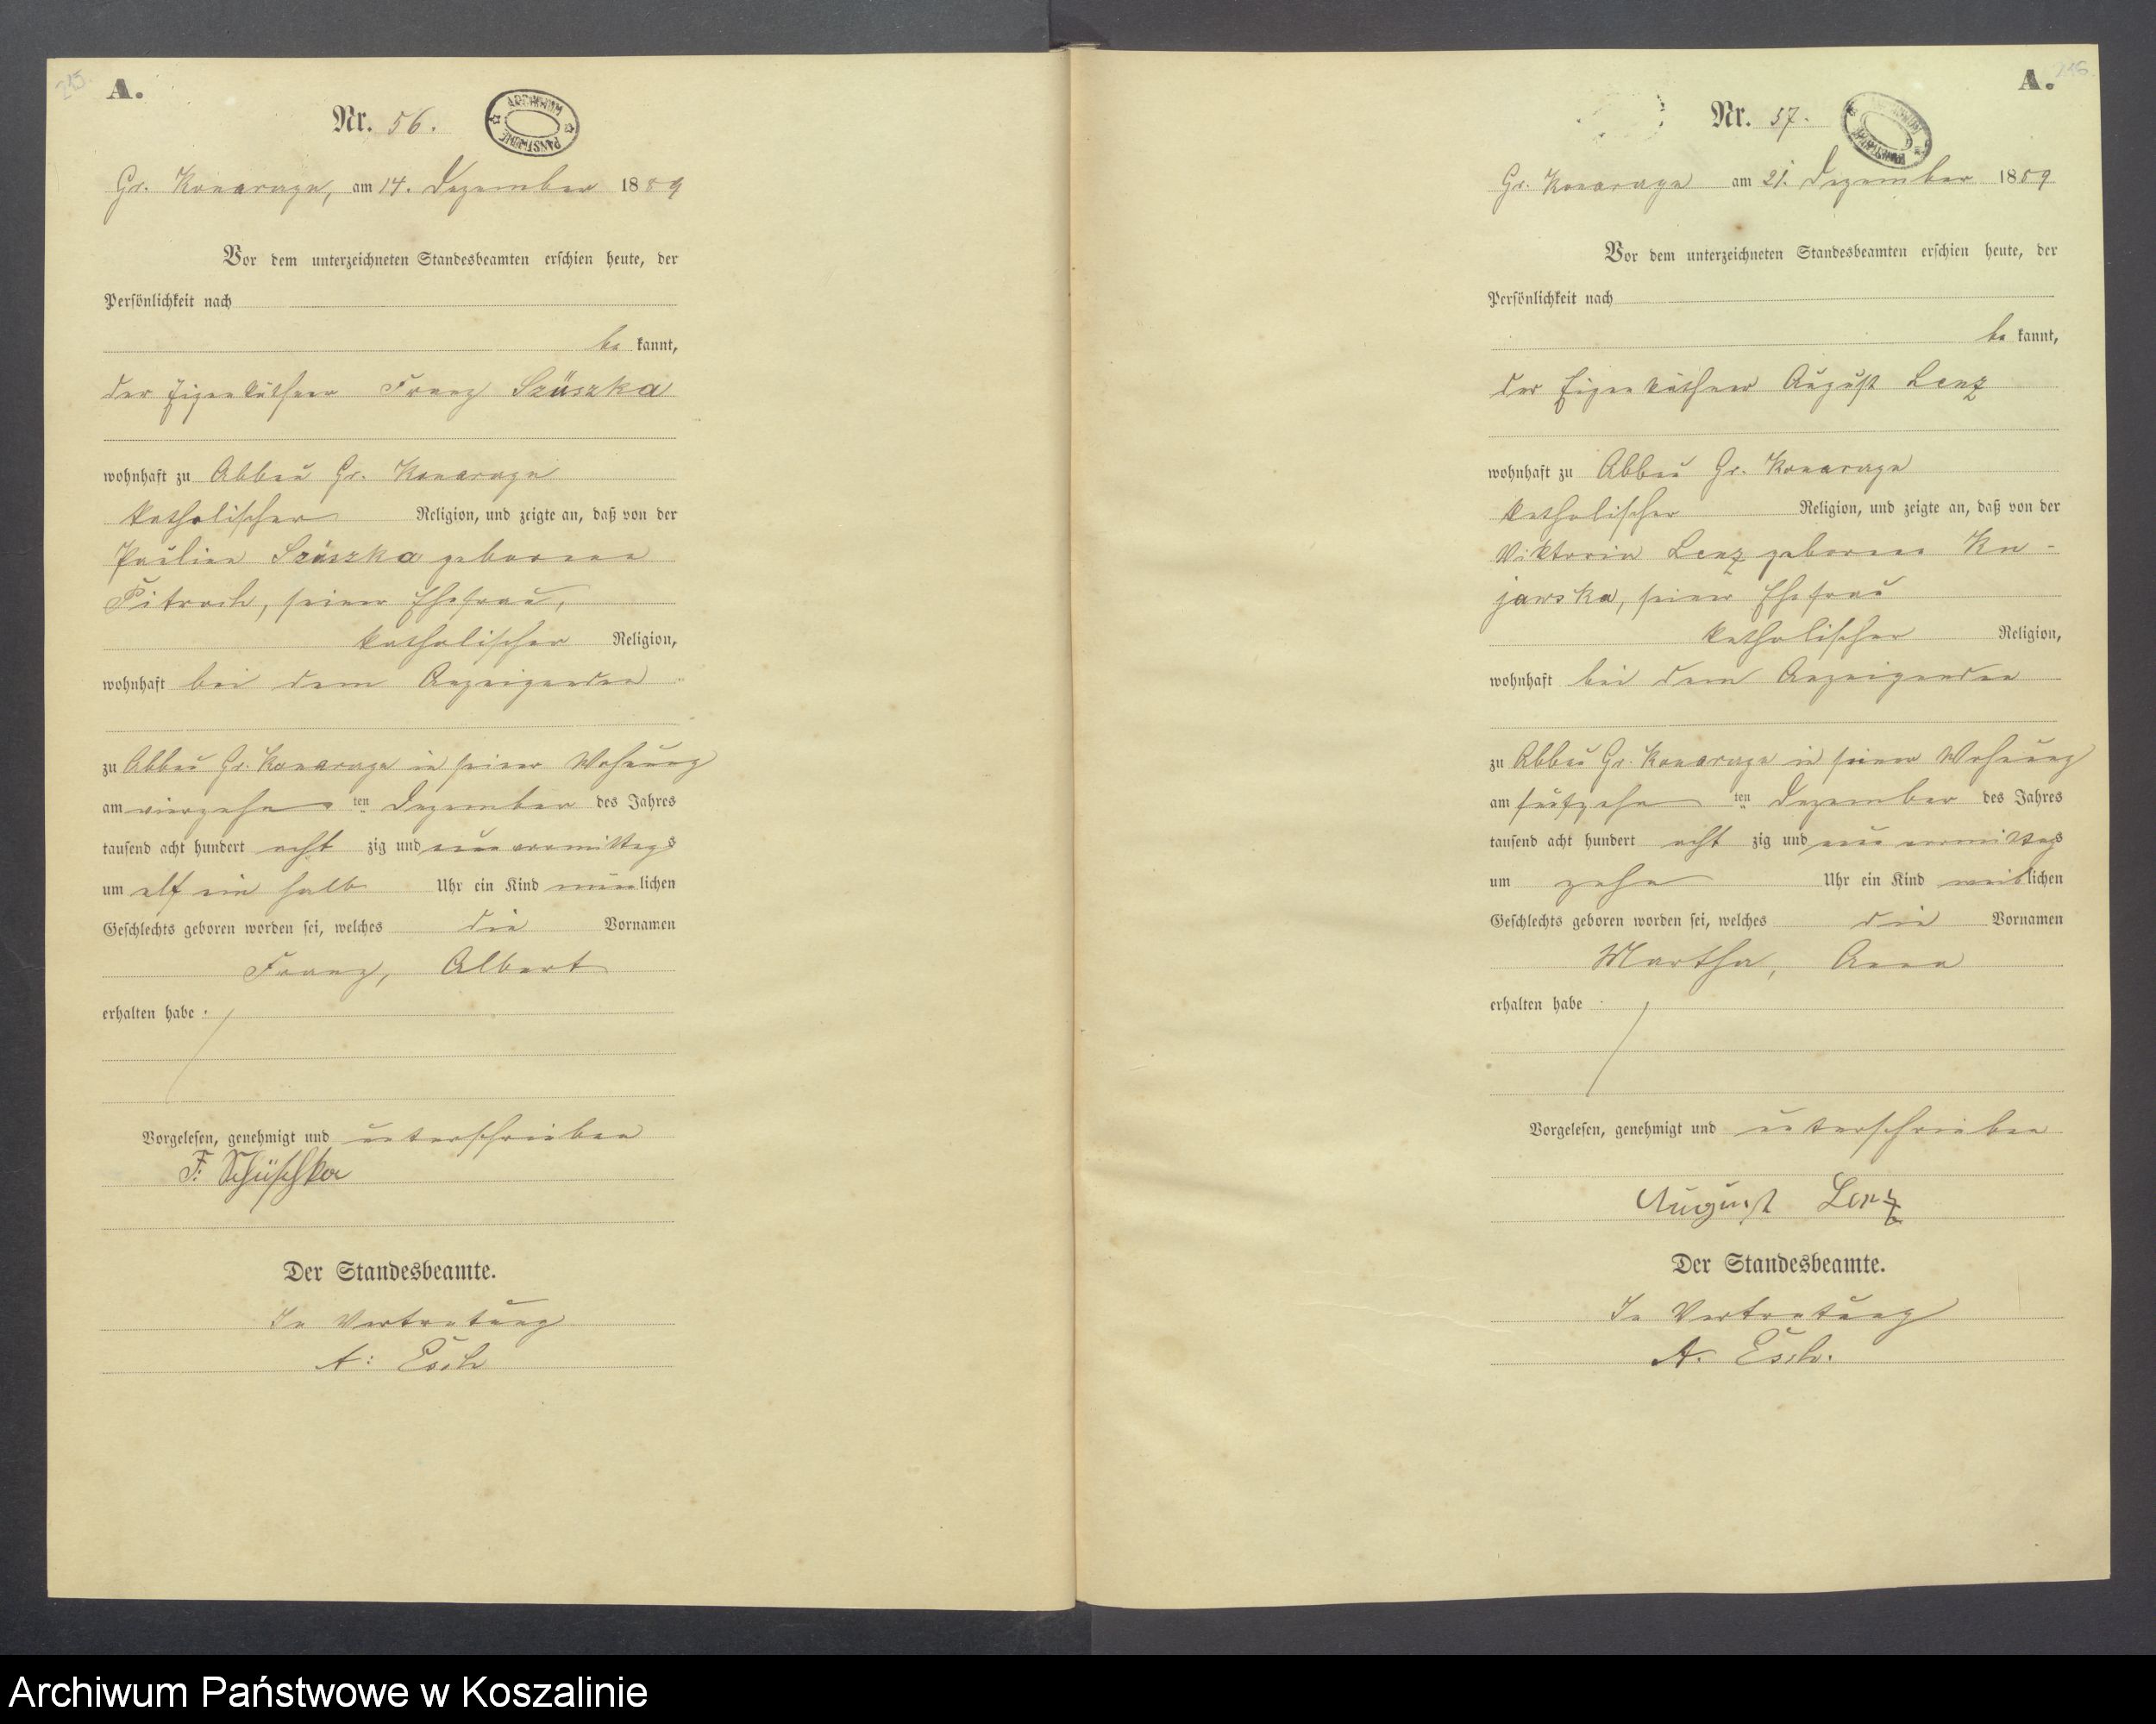 A.
Nr. 56.
Gr. Konarzyn, am 14. Dezember 1889
Vor dem unterzeichneten Standesbeamten erschien heute, der
Persönlichkeit nach
be kannt,
der Eigenkäthner Franz Szüszka
wohnhaft zu Abbau Gr. Konarzyn
katholischer Religion, und zeigte an, daß von der
Pauline Szüszka geborene
Pitrach, seiner Ehefrau,
katholischer Religion,
wohnhaft bei dem Anzeigenden
zu Abbau Gr. Konarzyn in seiner Wohnung
am vierzehn ten Dezember des Jahres
tausend acht hundert acht zig und neun vormittags
um elf ein halb Uhr ein Kind männlichen
Geschlechts geboren worden sei, welches die Vornamen
Franz, Albert
erhalten habe.
Vorgelesen, genehmigt und unterschrieben
F. Schüschka
Der Standesbeamte.
In Vertretung
A: Esch
A.
Nr. 57.
Gr. Konarzyn am 21. Dezember 1889
Vor dem unterzeichneten Standesbeamten erschien heute, der
Persönlichkeit nach
be kannt,
der Eigenkäthner August Lenz
wohnhaft zu Abbau Gr. Konarzyn
katholischer Religion, und zeigte an, daß von der
Viktoria Lenz geborene Ku-
jawska, seiner Ehefrau
katholischer Religion,
wohnhaft bei dem Anzeigenden
zu Abbau Gr. Konarzyn in seiner Wohnung
am fünfzehn ten Dezember des Jahres
tausend acht hundert acht zig und neun vormittags
um zehn Uhr ein Kind weiblichen
Geschlechts geboren worden sei, welches die Vornamen
Martha, Anna
erhalten habe.
Vorgelesen, genehmigt und unterschrieben
August Lenz
Der Standesbeamte.
In Vertretung
A. Esch.
Archiwum Państwowe w Koszalinie